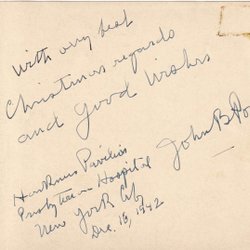 With very best
Christmas regards
and Good Wishes
John B Po
Harkness Pavilion
Presbyterian Hospital
New York City
Dec. 16, 1942